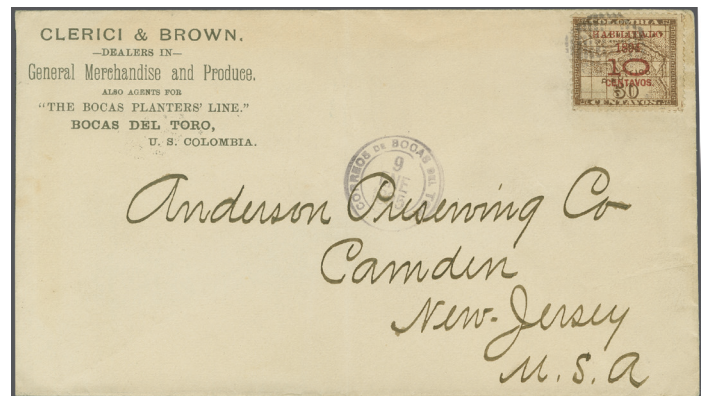 CLERICI & BROWN,
—DEALERS IN—
General Merchandise and Produce.
ALSO AGENTS FOR
"THE BOCAS PLANTERS' LINE."
BOCAS DEL TORO,
U. S. COLOMBIA.
COLOMBIA
HABILITADO
1894
10
CENTAVOS.
50
CENTAVOS.
CORREOS DE BOCAS DEL
9
Anderson Preserving Co
Camden
New-Jersey
U. S. A